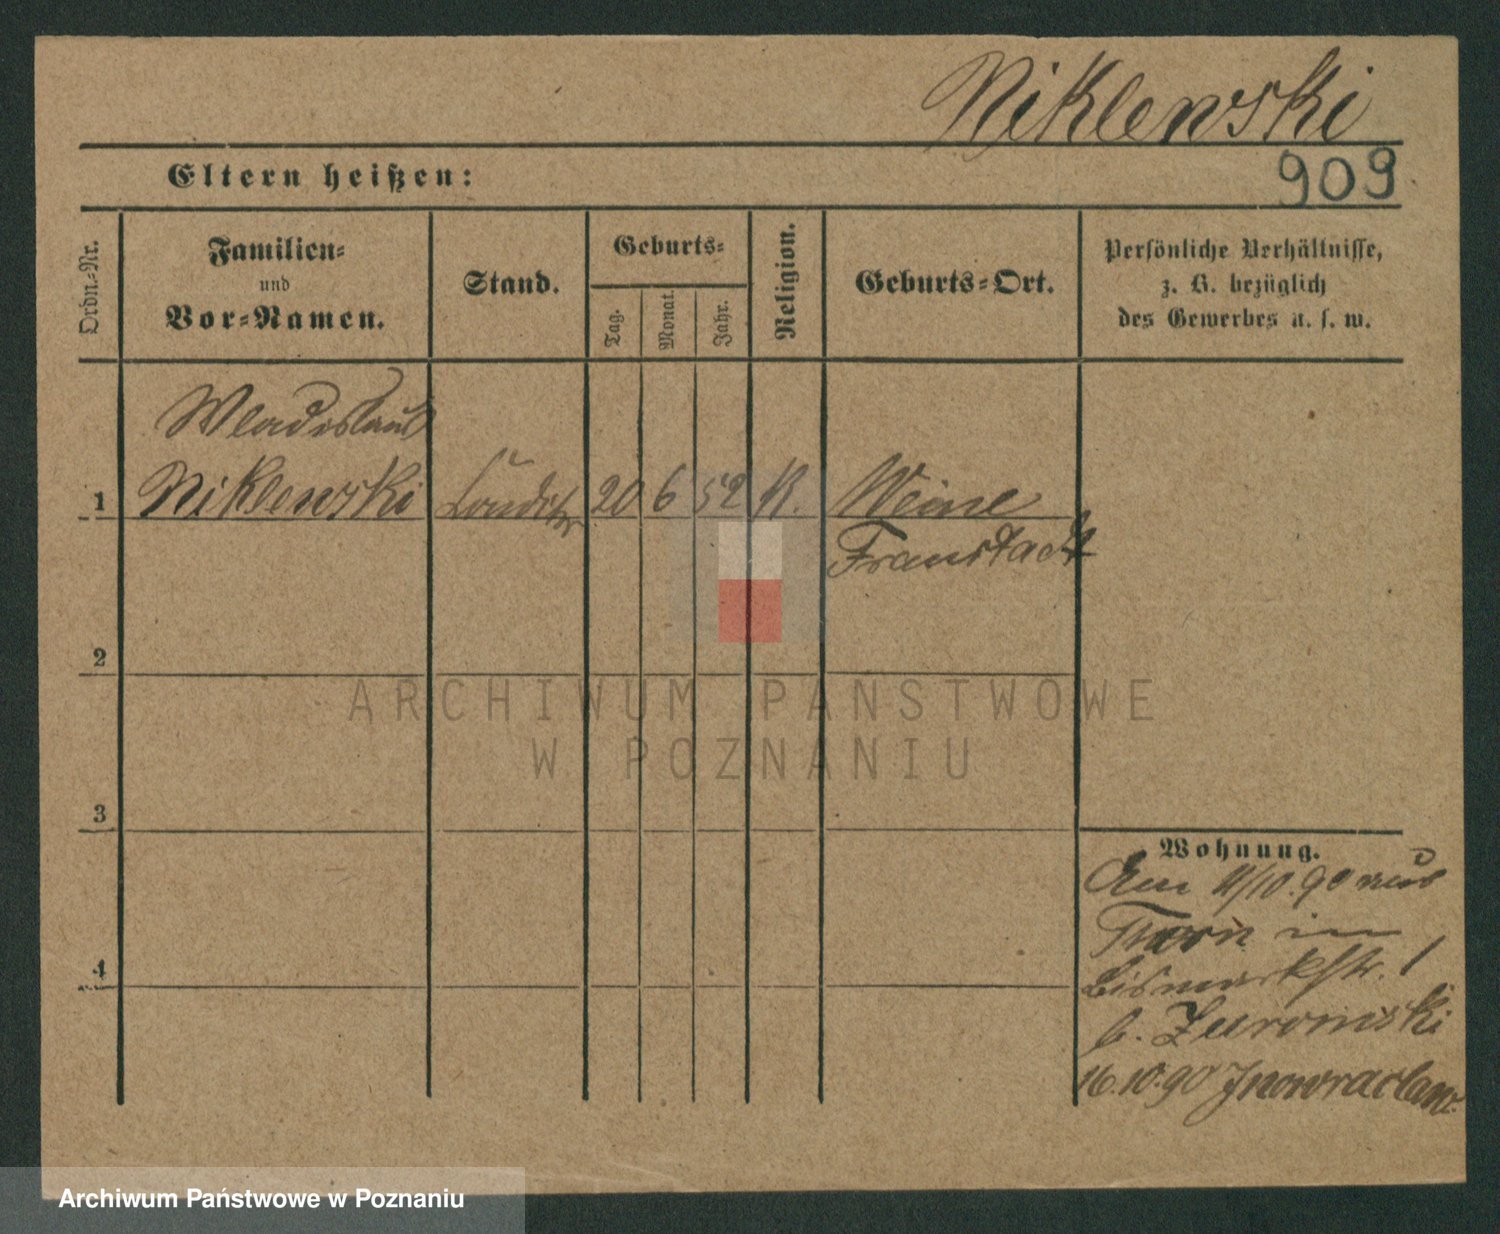 Niklewski
909
Eltern heißen:
Ordn.-Nr.
Familien-
und
Vor-Namen.
Stand.
Geburts-
Tag.
Monat.
Jahr.
Religion.
Geburts-Ort.
Persönliche Verhältnisse,
z. B. bezüglich
des Gewerbes u. s. w.
Wladislaus
1 Niklewski 20 6 52 K. Weine
Fraustadt
2
3
4
Wohnung.
Am 11/10.90 aus
Thorn in
Bismarkstr. 1
b. Zuromski
16.10.90 Inowraclaw.
ARCHIWUM PAŃSTWOWE
W POZNANIU
Archiwum Państwowe w Poznaniu